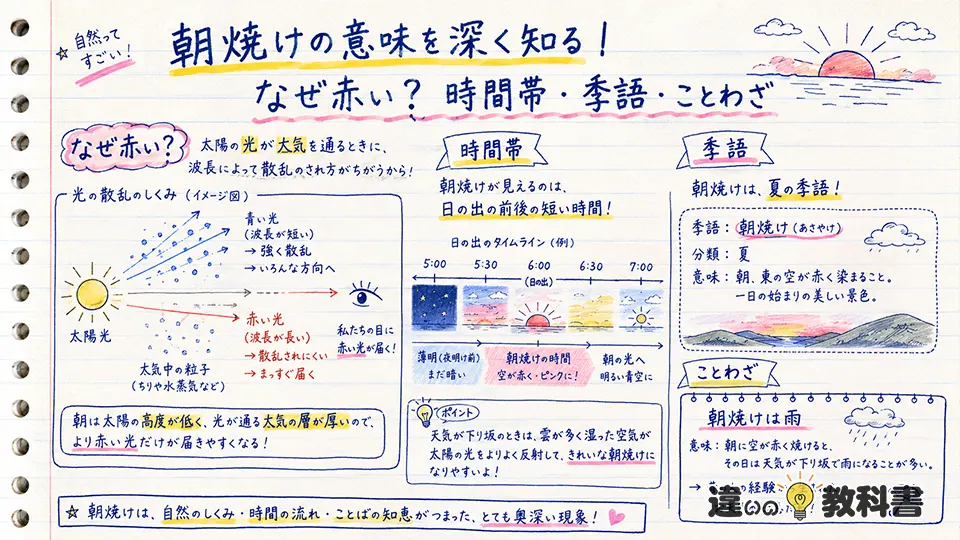 ☆ 自然って
すごい！
朝焼けの意味を深く知る！
なぜ赤い？ 時間帯・季語・ことわざ
なぜ赤い？
太陽の光が大気を通るときに、
波長によって散乱のされ方がちがうから！
光の散乱のしくみ（イメージ図）
青い光
（波長が短い）
→ 強く散乱
→ いろんな方向へ
太陽光
赤い光
（波長が長い）
→ 散乱されにくい
→ まっすぐ届く
私たちの目に
赤い光が届く！
大気中の粒子
（ちりや水蒸気など）
朝は太陽の高度が低く、光が通る大気の層が厚いので、
より赤い光だけが届きやすくなる！
時間帯
朝焼けが見えるのは、
日の出の前後の短い時間！
日の出のタイムライン（例）
5:00 5:30 6:00 6:30 7:00
（日の出）
薄明（夜明け前）
まだ暗い
朝焼けの時間
空が赤く・ピンクに！
朝の光へ
明るい青空に
ポイント
天気が下り坂のときは、雲が多く湿った空気が
太陽の光をよりよく反射して、きれいな朝焼けに
なりやすいよ！
季語
朝焼けは、夏の季語！
季語：朝焼け（あさやけ）
分類：夏
意味：朝、東の空が赤く染まること。
一日の始まりの美しい景色。
ことわざ
朝焼けは雨
意味：朝に空が赤く焼けると、
その日は天気が下り坂で雨になることが多い。
→ の経験
違いの教科書
☆ 朝焼けは、自然のしくみ・時間の流れ・ことばの知恵がつまった、とても奥深い現象！